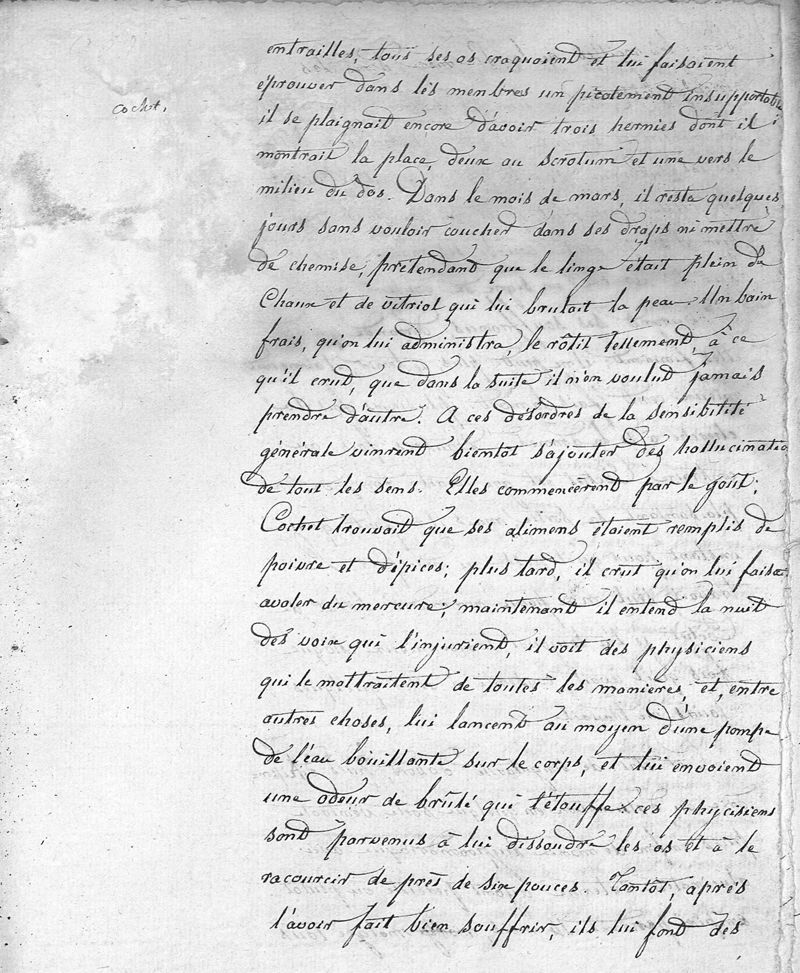 entrailles, tous ses os craquoient et lui faisaient
Cochet,
éprouver dans les menbres un picotement insupportable
il se plaignait encore d'avoir trois hernies dont il
montrait la place, deux au scrotum et une vers le
milieu du dos. Dans le mois de mars, il resta quelques
jours sans vouloir coucher dans ses draps ni mettre
de chemise, prétendant que le linge était plein de
Chaux et de vitriol qui lui brulait la peau. Un bain
frais, qu'on lui administra, le rôtit tellement, à ce
qu'il crut, que dans la suite il n'en voulut jamais
prendre d'autre. A ces désordres de la sensibilité
générale vinrent bientot s'ajouter des hallucinatio
de tout les sens. Elles commencèrent par le goût;
Cochet trouvait que ses alimens étaient remplis de
poivre et d'épices; plus tard, il crut qu'on lui faisa
avaler du mercure; maintenant il entend la nuit
des voix qui l'injurient, il voit des physiciens
qui le maltraitent de toutes les manières, et, entre
autres choses, lui lancent au moyen d'une pompe
de l'eau bouillante sur le corps, et lui envoient
une odeur de brûlé qui l'étouffe. ces phycisiens
sont parvenus à lui dissoudre les os et à le
racourcir de près de six pouces. Tantôt, après
l'avoir fait bien souffrir, ils lui font des